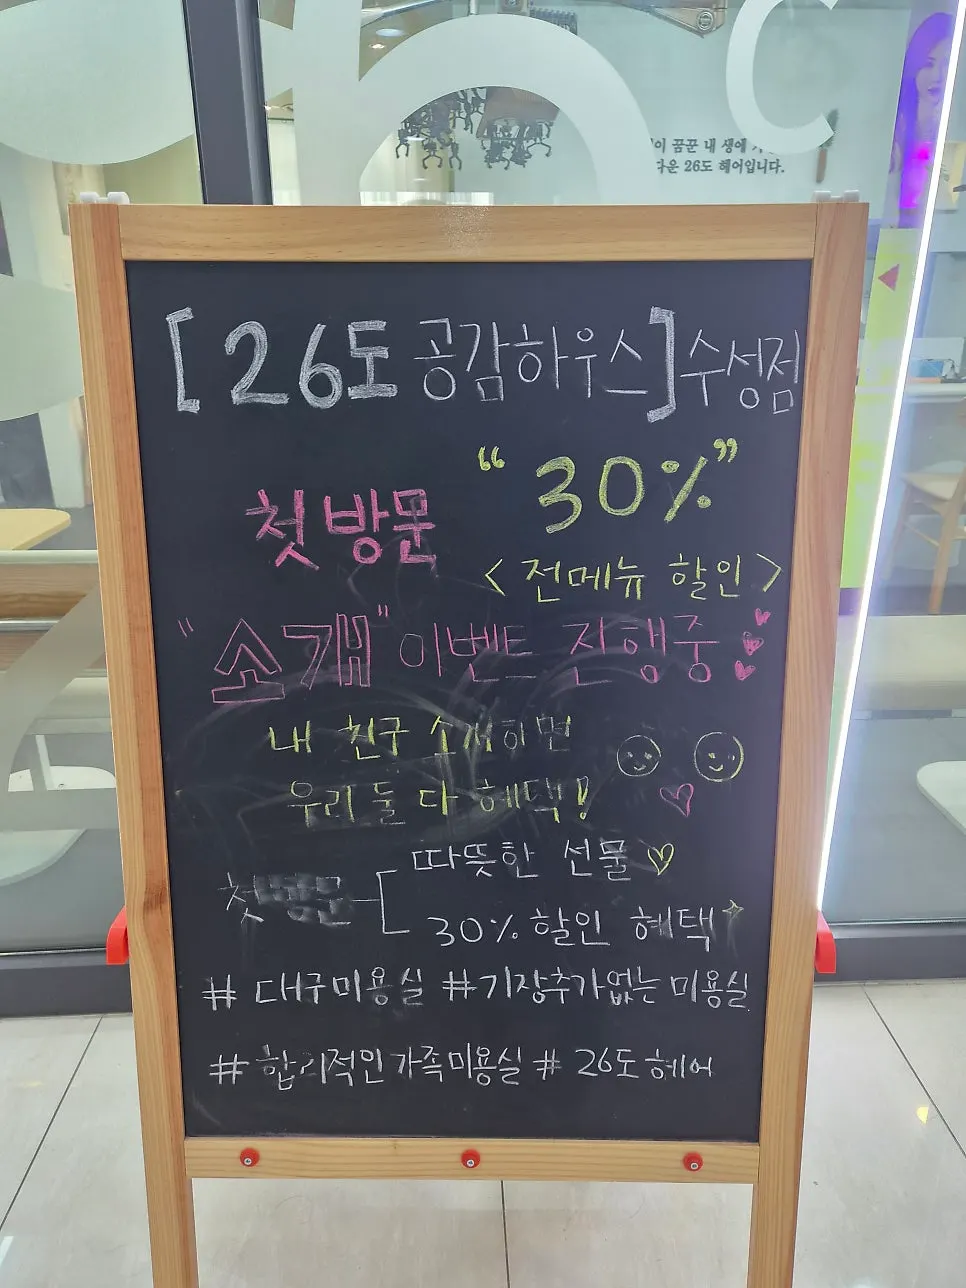 꿈꾼 내 생에
26도 헤어입니다.
[26도 공감하우스] 수성점
첫방문 "30%"
<전메뉴 할인>
"소개" 이벤트 진행중
내 친구 소개하면
우리 둘 다 혜택!
따뜻한 선물
첫방문
30% 할인 혜택
# 대구미용실 #기장추가없는 미용실
# 합리적인 가족미용실 # 26도 헤어